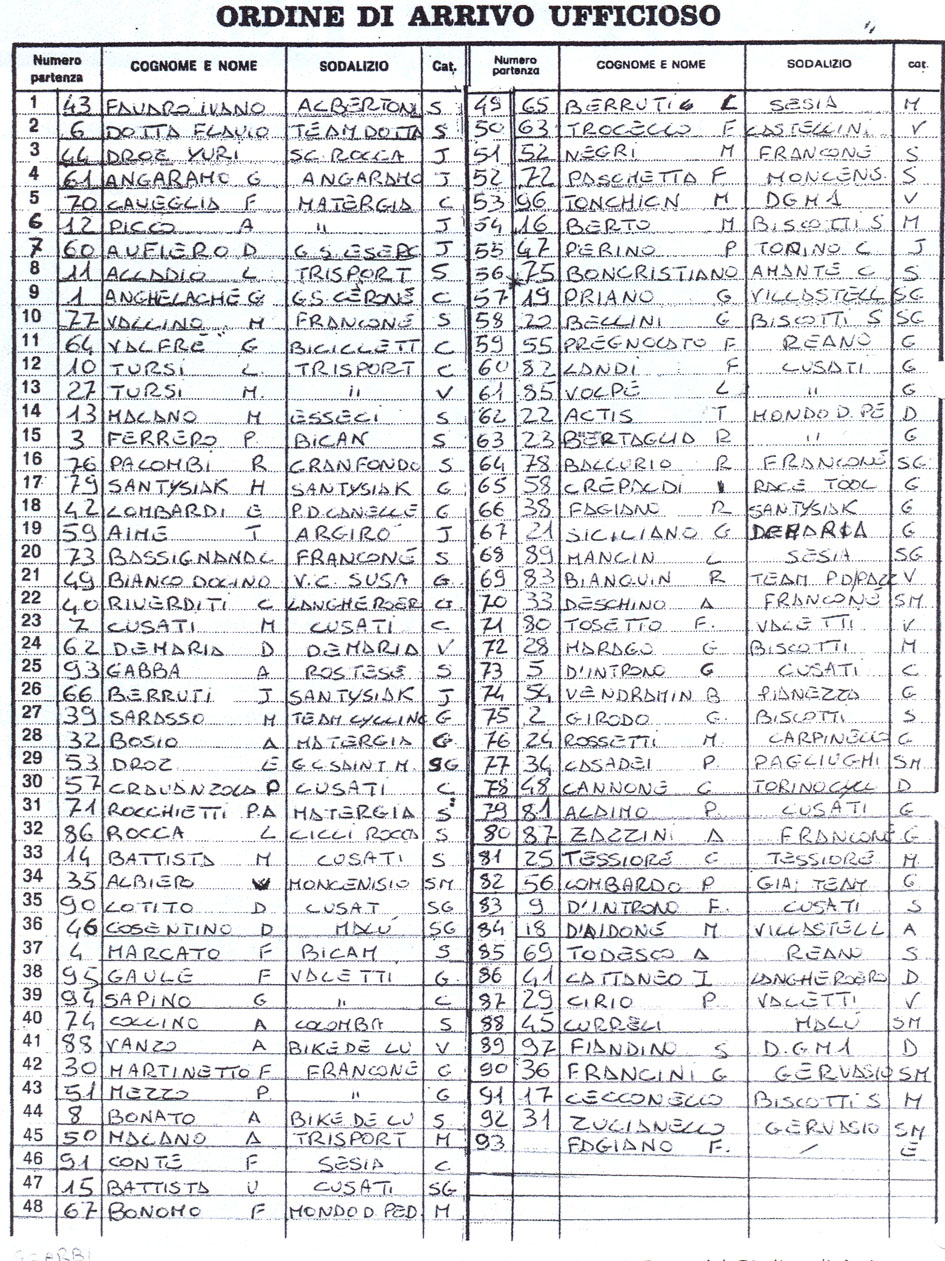 ORDINE DI ARRIVO UFFICIOSO
Numero partenza COGNOME E NOME SODALIZIO Cat.
1 43 FAVARO IVANO ALBERTONI S
2 6 DOTTA FLAVIO TEAM DOTTA S
3 44 DROZ YURI SC. ROCCA J
4 61 ANGARAMO G ANGARAMO J
5 70 CAVEGLIA F MATERGIA C
6 12 PICCO A " J
7 60 AUFIERO D G.S. ESERC J
8 11 ALLADIO L TRISPORT S
9 1 ANGHELACHE G G.S. CERONE C
10 77 VALLINO M FRANCONE S
11 64 VALFRE' G BICICLETT C
12 10 TURSI L TRISPORT C
13 27 TURSI M. " V
14 13 MALANO M ESSECI S
15 3 FERRERO P. BICAN S
16 76 PALOMBI R GRANFONDO S
17 79 SANTYSIAK H SANTYSIAK G
18 42 LOMBARDI E P.D. CANELLE G
19 59 AIME T ARGIRO' J
20 73 BASSIGNANA C FRANCONE S
21 49 BIANCO DOLINO V.C. SUSA G
22 40 RIVERDITI C LANGHEROER G
23 7 CUSATI M CUSATI C
24 62 DEMARIA D DEMARIA V
25 93 GABBA A ROSTESE S
26 66 BERRUTI J SANTYSIAK J
27 39 SARASSO M TEAM CYCLING G
28 32 BOSIO A MATERGIA G
29 53 DROZ E G.C. SAINT M. SG
30 57 CRAVANZOLA P CUSATI C
31 71 ROCCHIETTI P.A MATERGIA S
32 86 ROCCA L CICLI ROCCA S
33 14 BATTISTA M CUSATI S
34 35 ALBIERO W MONCENISIO SM
35 90 LOTITO D CUSAT SG
36 46 COSENTINO D MALU' SG
37 4 MARCATO F BICAM S
38 95 GAULE F VALETTI G
39 94 SAPINO G " C
40 74 COLLINO A COLOMBA S
41 88 VANZO A BIKE DE LU V
42 30 MARTINETTO F FRANCONE G
43 51 MEZZO P " G
44 8 BONATO A BIKE DE LU S
45 50 MALANO A TRISPORT M
46 91 CONTE F SESIA C
47 15 BATTISTA U CUSATI SG
48 67 BONOMO F MONDO D. PED. M
Numero partenza COGNOME E NOME SODALIZIO cat.
49 65 BERRUTI L SESIA M
50 63 TROCELLO F CASTELLINI V
51 52 NEGRI M FRANCONE S
52 72 PASCHETTA F MONCENS. S
53 96 TONCHICN M DGM1 V
54 16 BERTO M BISCOTTI S M
55 47 PERINO P TORINO C J
56 75 BONCRISTIANO AMANTE C S
57 19 PRIANO G VILLASTELL SG
58 20 BELLINI G BISCOTTI S SG
59 55 PREGNOLATO F REANO G
60 82 LANDI F CUSATI G
61 85 VOLPE L " G
62 22 ACTIS T MONDO D. PE D
63 23 BERTAGLIA R " G
64 78 BALLURIO R FRANCONE SG
65 58 CREPALDI RACE TOOL G
66 38 FAGIANO R SANTYSIAK G
67 21 SICILIANO G DEMARIA G
68 89 MANCIN L SESIA SG
69 83 BIANQUIN R TEAM P.D/PAZZ V
70 33 DESCHINO A FRANCONE SM
71 80 TOSETTO F. VALETTI V
72 28 MARAGO G BISCOTTI M
73 5 D'INTRONO G CUSATI C
74 54 VENDRAMIN B PIANEZZA G
75 2 GIRODO G. BISCOTTI S
76 24 ROSSETTI M. CARPINELLO G
77 34 CASADEI P. PAGLIUGHI SM
78 48 CANNONE G TORINO CYCL D
79 81 ALAIMO P. CUSATI G
80 87 ZAZZINI A FRANCONE G
81 25 TESSIORE G TESSIORE M
82 56 LOMBARDO P GIAI TEAM G
83 9 D'INTRONO F. CUSATI S
84 18 D'AIDONE M VILLASTELL A
85 69 TODESCO A REANO S
86 41 CATTANEO I LANGHEROERO D
87 29 CIRIO P. VALETTI V
88 45 CURRELI MALU' SM
89 97 FIANDINO S D.GM1 D
90 36 FRANCINI G GERVASIO SM
91 17 CECCONELLO BISCOTTI S M
92 31 ZUCIANELLO GERVASIO SM
93 FAGIANO F. / E